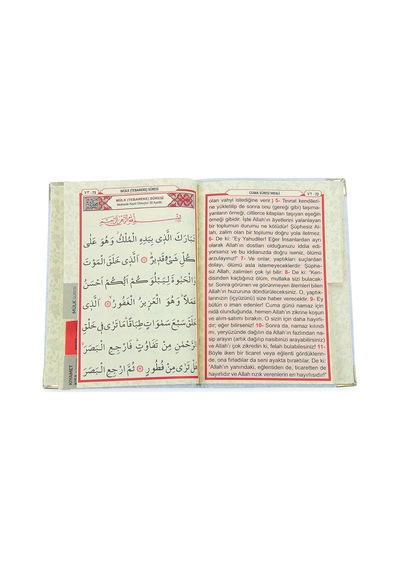 MÜLK (TEBAREKE) SÛRESİ
MÜLK (TEBAREKE) SÛRESİ
تَبَارَكَ الَّذِي بِيَدِهِ الْمُلْكُ وَهُوَ عَلَى
كُلِّ شَيْءٍ قَدِيرٌ الَّذِي خَلَقَ الْمَوْتَ
وَالْحَيٰوةَ لِيَبْلُوَكُمْ اَيُّكُمْ اَحْسَنُ
عَمَلًا وَهُوَ الْعَزِيزُ الْغَفُورُ الَّذِي
خَلَقَ سَبْعَ سَمٰوَاتٍ طِبَاقًا مَا تَرٰى فِي خَلْقِ
الرَّحْمٰنِ مِنْ تَفَاوُتٍ فَارْجِعِ الْبَصَرَ
هَلْ تَرٰى مِنْ فُطُورٍ ثُمَّ ارْجِعِ الْبَصَرَ
MÜLK
KIYAMET
CUMA SÛRESİ MEALİ
olan vahyi istediğine verir) 5- Tevrat kendileri-
ne yükletilip de sonra onu (gereği gibi) taşıma-
yanların örneği, ciltlerce kitapları taşıyan eşeğin
örneği gibidir. İşte Allah'ın âyetlerini yalanlayan
bir toplumun durumu ne kötüdür! Şüphesiz Al-
lah, zalim olan bir toplumu doğru yola iletmez.
6- De ki: "Ey Yahudiler! Eğer İnsanlardan ayrı
olarak Allah'ın dostları olduğunuzu iddia edi-
yorsanız ve bu iddianızda doğru iseniz, ölümü
arzulayınız!" 7- Ve onlar, yaptıkları suçlardan
dolayı, ölümü asla istemeyeceklerdir. Şüphe-
siz Allah, zalimleri çok iyi bilir. 8- De ki: "Ken-
disinden kaçmakta olduğunuz ölüm, sizi bulacaktır.
Sonra görünen ve görünmeyen âlemleri bilen
Allah'ın huzuruna döndürüleceksiniz. O, yaptık-
larınızın (içyüzünü) size haber verecektir. 9- Ey
bütün o iman edenler! Cuma günü namaz için
nidâ olunduğunda, hemen Allah'ın zikrine koşun
ve alım-satımı bırakın. O sizin için daha hayırlı-
dır; eğer bilirseniz! 10- Sonra da, namaz kılındı
mı, yeryüzünde dağılın da Allah'ın fazlından na-
sip arayın (artık dağılıp nasibinizi arayabilirsiniz)
ve Allah'ı çok zikredin ki, felah bulabilesiniz! 11-
Böyle iken bir ticaret veya eğlenti gördüklerin-
de, ona fırladılar da seni ayakta bıraktılar. De ki:
"Allah'ın yanındaki, eğlentiden de, ticaretten de
hayırlıdır ve Allah rızık verenlerin en hayırlısıdır!"